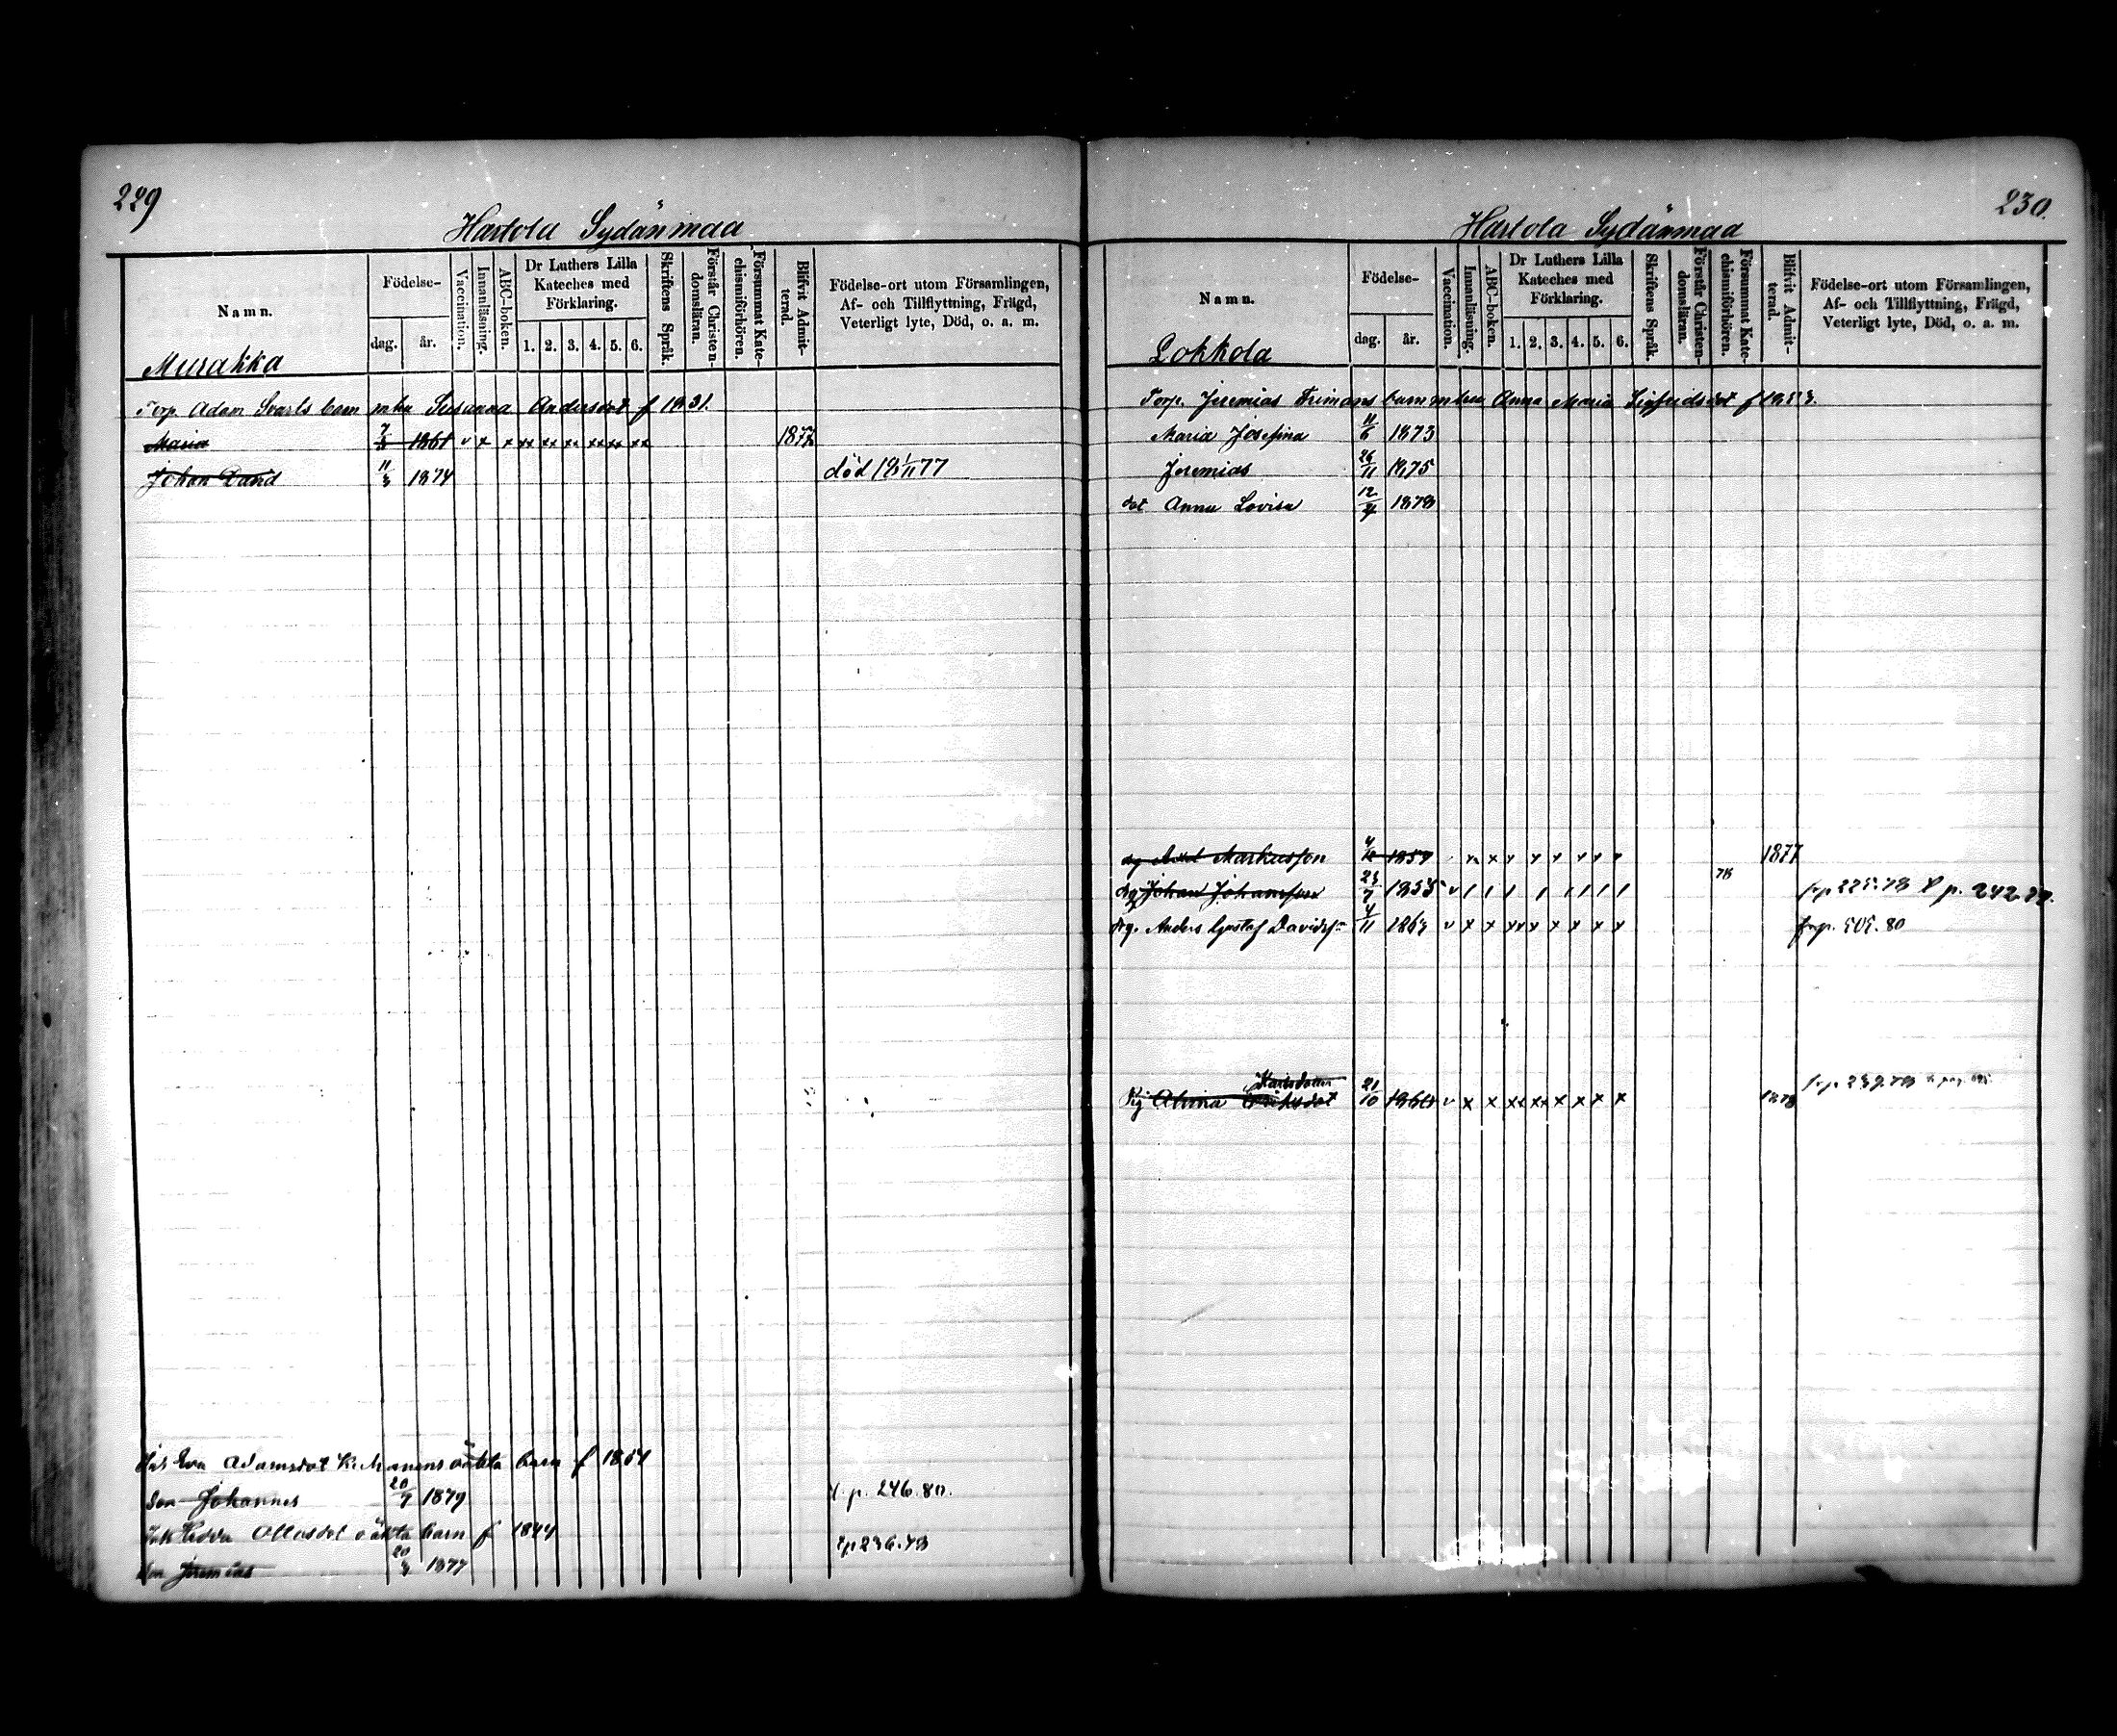 229
Hartola Sydänmaa
Namn.
Födelse-
dag.
år.
Vaccination.
Innanläsning.
ABC-boken.
Dr Luthers Lilla Kateches med Förklaring.
1. 2. 3. 4. 5. 6.
Skriftens Språk.
Förstår Christendomsläran.
Försummat Katechismiförhören.
Blifvit Admitterad.
Födelse-ort utom Församlingen,
Af- och Tillflyttning, Frägd,
Veterligt lyte, Död, o. a. m.
Murakka
Torp. Adam Svarls barn mhu Susanna Andersdot f 1831.
Maria 1861 v x x xx xx xx xx xx xx 1877
Johan David 11/3 1874 död 1/11 77
Eva Adamsdot oäkta barn f 1851
Son Johannes 20/9 1879 p. 246.80.
Hedda oäkta barn f 1844
Son Jeremias 20/3 1877 p 236.78
230.
Hartola Sydänmaa
Namn.
Födelse-
dag.
år.
Vaccination.
Innanläsning.
ABC-boken.
Dr Luthers Lilla Kateches med Förklaring.
1. 2. 3. 4. 5. 6.
Skriftens Språk.
Förstår Christendomsläran.
Försummat Katechismiförhören.
Blifvit Admitterad.
Födelse-ort utom Församlingen,
Af- och Tillflyttning, Frägd,
Veterligt lyte, Död, o. a. m.
Lokkola
Torp. Jeremias Frimans barn m hu Anna Maria Sigfridsdot f 1853.
Maria Josefina 11/6 1873
Jeremias 26/11 1875
dot Anna Lovisa 12/4 1878
Markusson x x x x x x x 1877
drg Johan Johansson 1855 v / / / / / / / / 78 fr p 225.78 p. 242.
drg. Anders Gustaf Davidss 4/11 v x x xx x x x x x fr p. 505. 80
Karlsdotter
Pig Alvina 21/10 1860 v x x xx xx x x x x 1878 fr p. 239.78